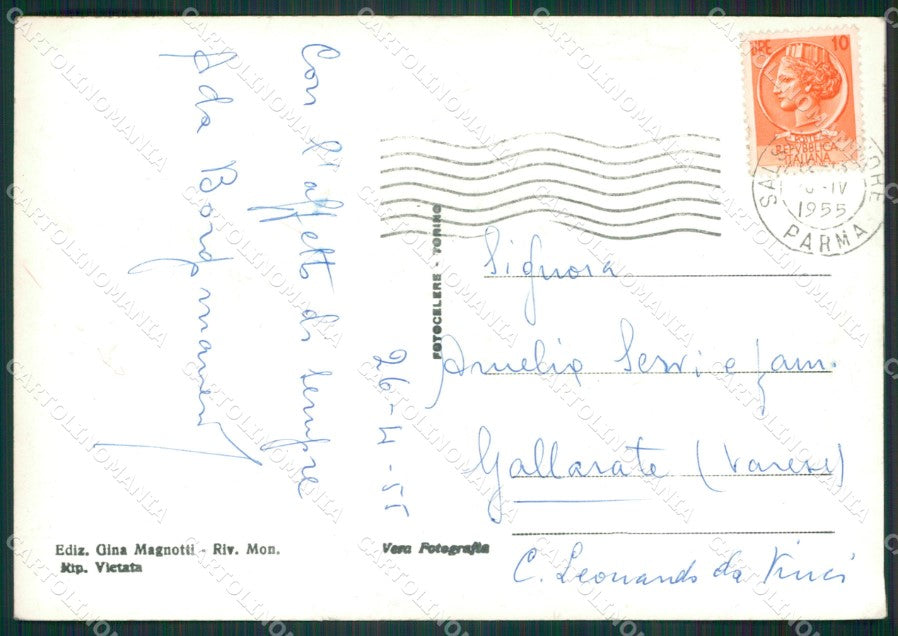 Con l'affetto di sempre
Ada
26-4-55
10
REPVBBLICA
ITALIANA
IV
1955
PARMA
FOTOCELERE - TORINO
Signora
Amelia Servi e fam.
Gallarate (Varese)
C. Leonardo da Vinci
Ediz. Gina Magnotti - Riv. Mon.
Rip. Vietata
Vera Fotografia
CARTOLINOMANIA